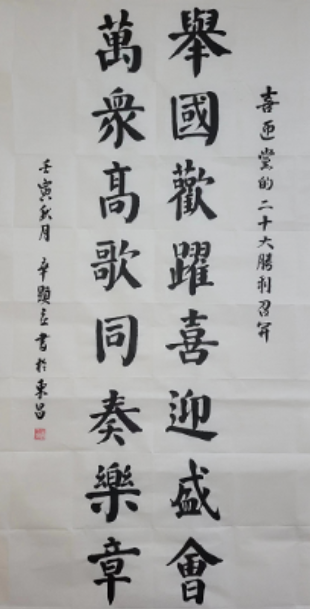 喜迎黨的二十大勝利召開
舉國歡躍喜迎盛會
萬衆高歌同奏樂章
壬寅秋月 辛顯立書於東昌